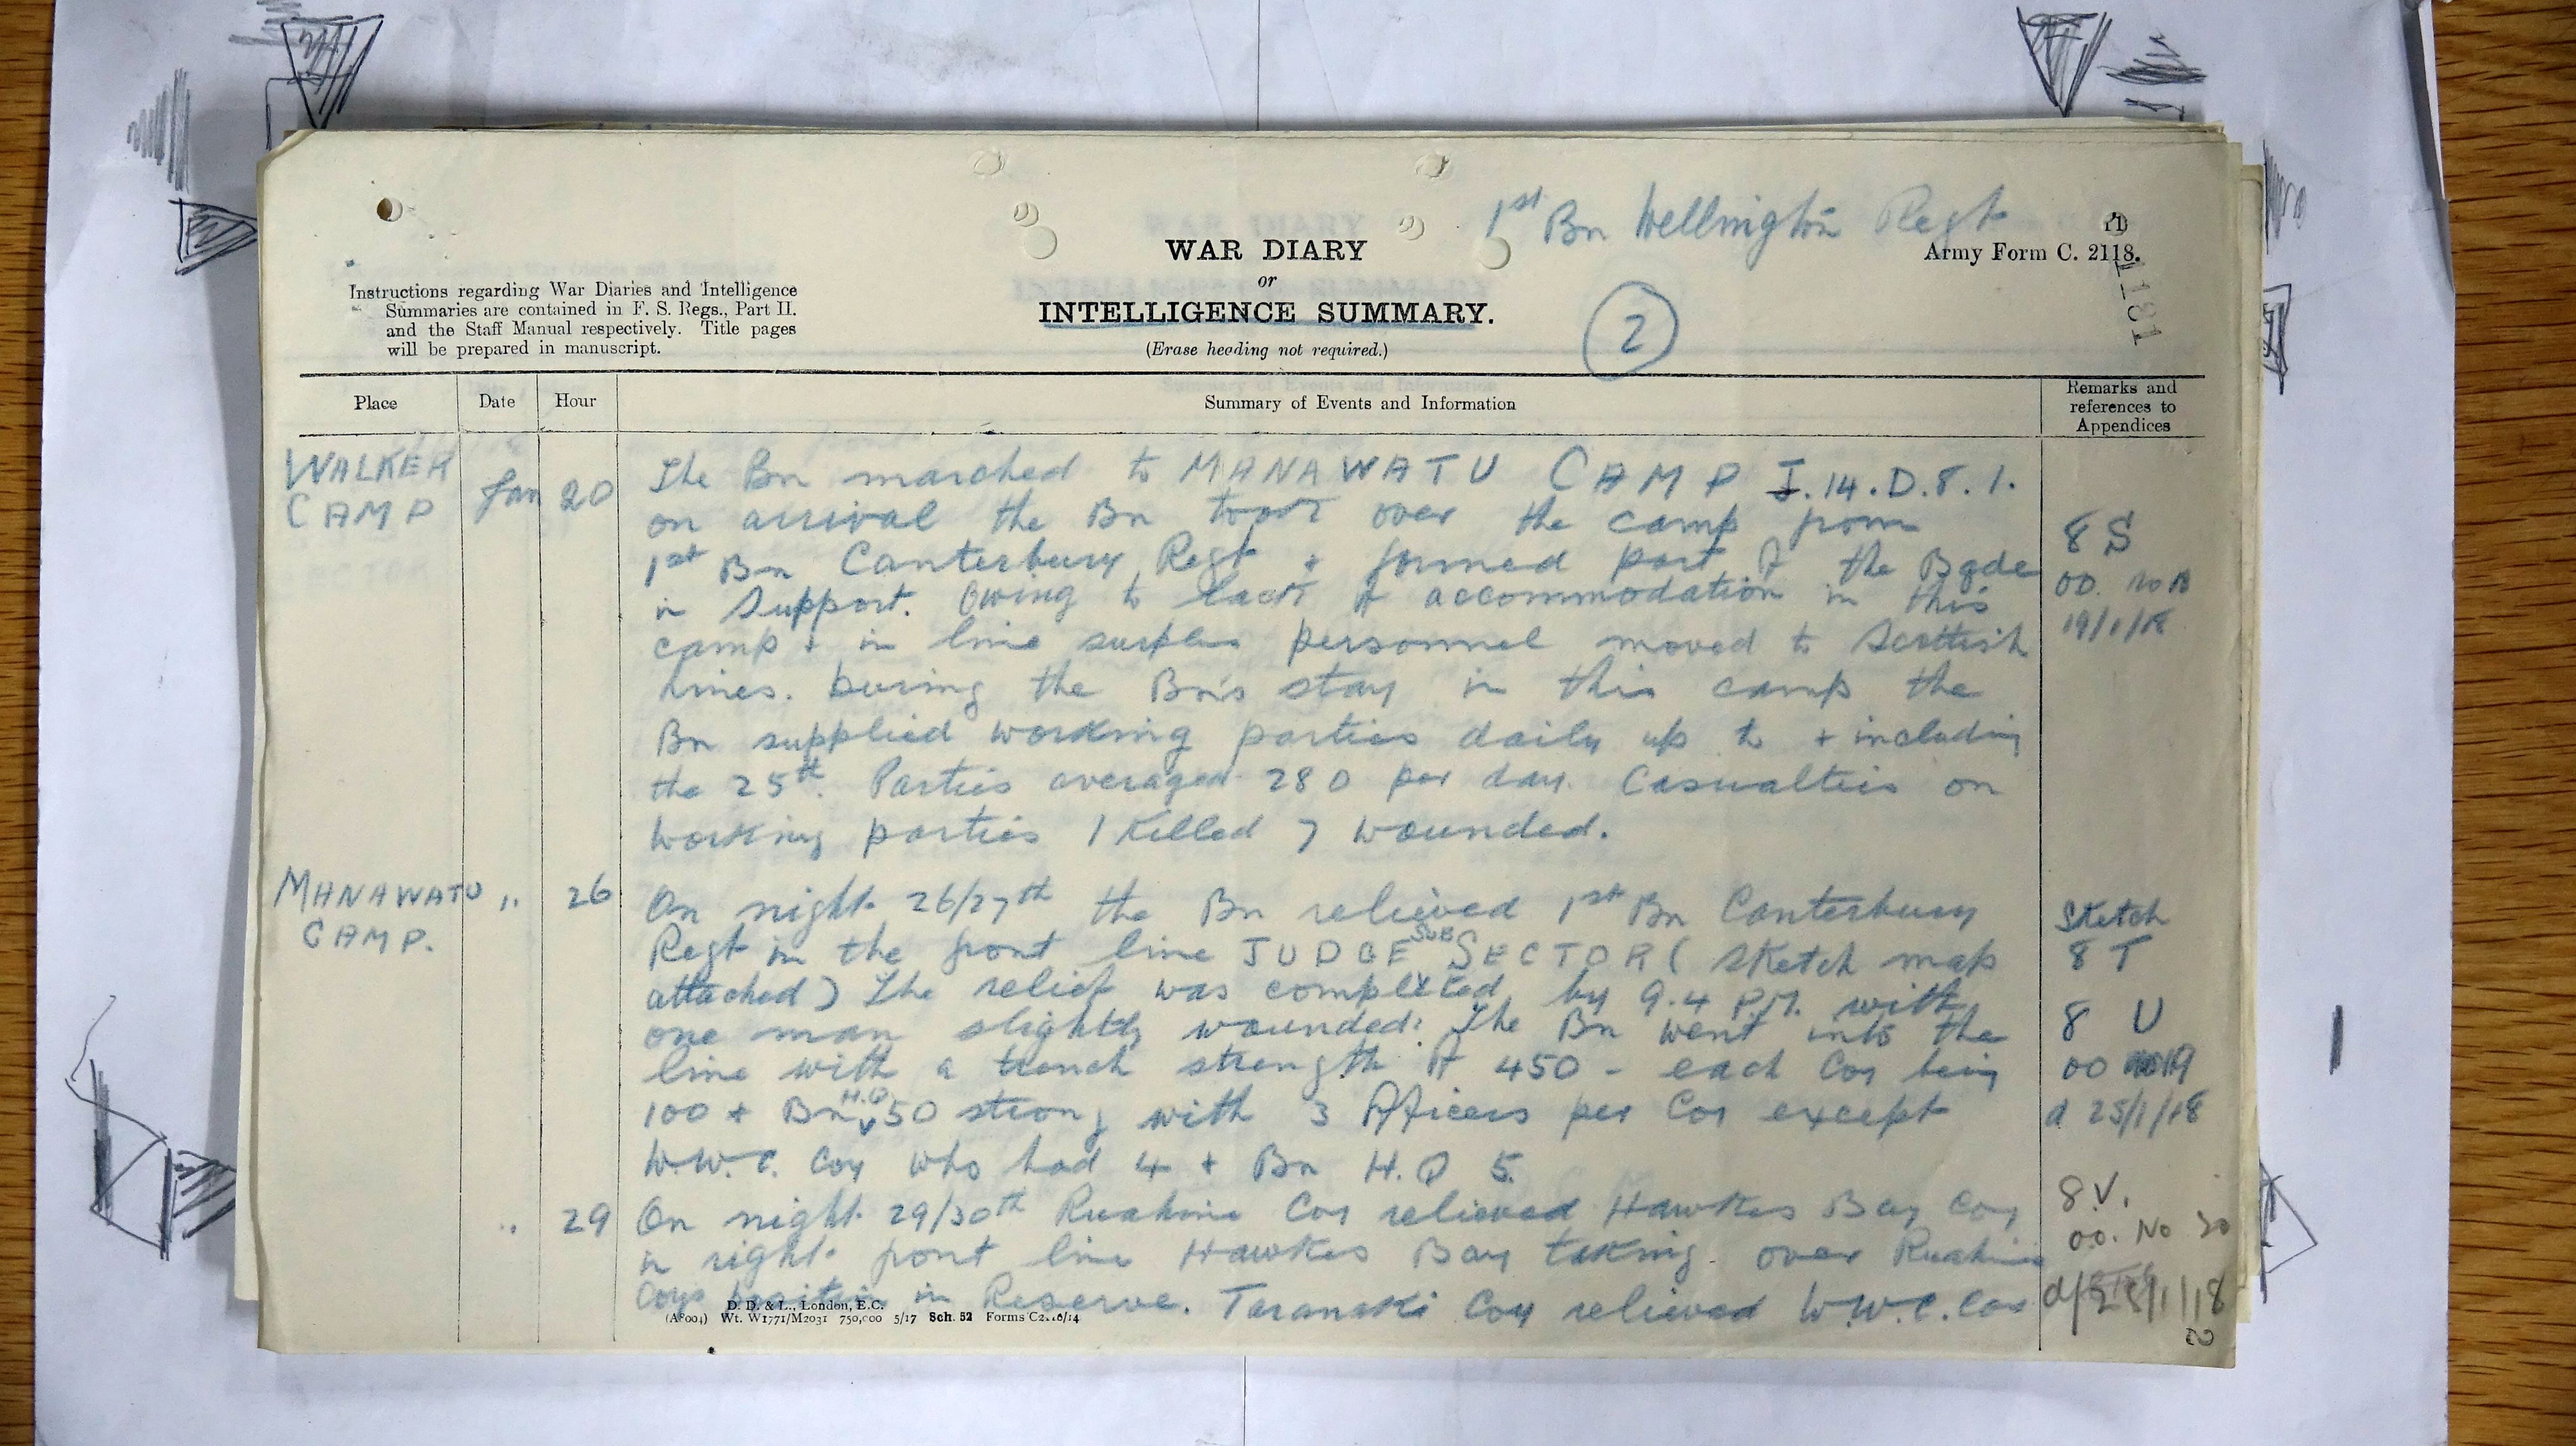 1st Bn Wellington Regt
Army Form C. 2118.
WAR DIARY
or
INTELLIGENCE SUMMARY.
(Erase heading not required.)
2
Instructions regarding War Diaries and Intelligence
Summaries are contained in F. S. Regs., Part II.
and the Staff Manual respectively. Title pages
will be prepared in manuscript.
Place Date Hour Summary of Events and Information Remarks and
references to
Appendices
WALKER
CAMP Jan 20
The Bn marched to MANAWATU CAMP I.14.D.8.1.
on arrival the Bn took over the camp from
1st Bn Canterbury Regt + formed part of the Bgde
in Support. Owing to lack of accommodation in this
camp + in line surplus personnel moved to Scottish
Lines. During the Bn's stay in this camp the
Bn supplied working parties daily up to + including
the 25th. Parties averaged 280 per day. Casualties on
working parties 1 Killed 7 wounded.
8 S
OO.
19/1/18
MANAWATU
CAMP. " 26
On night 26/27th the Bn relieved 1st Bn Canterbury
Regt in the front line JUDGE SUB SECTOR (sketch map
attached) The relief was completed by 9.4 P.M. with
one man slightly wounded. The Bn went into the
line with a trench strength of 450 - each Coy being
100 + Bn H.Q 50 strong with 3 Officers per Coy except
W.W.C. Coy who had 4 + Bn H.Q 5.
Sketch
8 T
8 U
OO 19
d 25/1/18
" 29
On night 29/30th Ruahine Coy relieved Hawkes Bay Coy
in right front line Hawkes Bay taking over Ruahine
Coys position in Reserve. Taranaki Coy relieved W.W.C. Coy
8 V.
O.O. No 20
d/28/1/18
D. D. & L., London, E.C.
(A8004) Wt. W1771/M2031 750,000 5/17 Sch. 52 Forms C2118/14